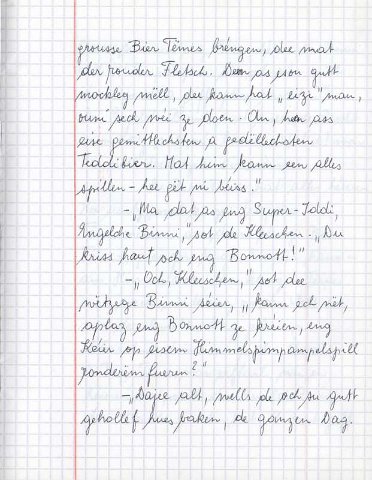 grousse Bier Tëmes bréngen, dee mat
der rouder Fletsch. Deen as esou gutt
mockleg mëll, dee kann hat „eizi" man,
ouni sech wéi ze doen. An, hien ass
eise gemittlechsten a gedëllechsten
Teddibier. Mat him kann een alles
spillen – hee gët ni béiss."
–„Ma dat as eng Super-Iddi,
Engelche Binni," sot de Kleeschen. „Du
kriss haut och eng Bonnott!"
–„Och, Kleeschen," sot dee
wëtzege Binni séier, „kann ech nët,
aplaz eng Bonnott ze kréien, eng
Kéier op eisem Himmelspimpampelspill
ronderëm fueren?"
–„Dajee alt, wells de och su gutt
gehollef hues baken, de ganzen Dag.